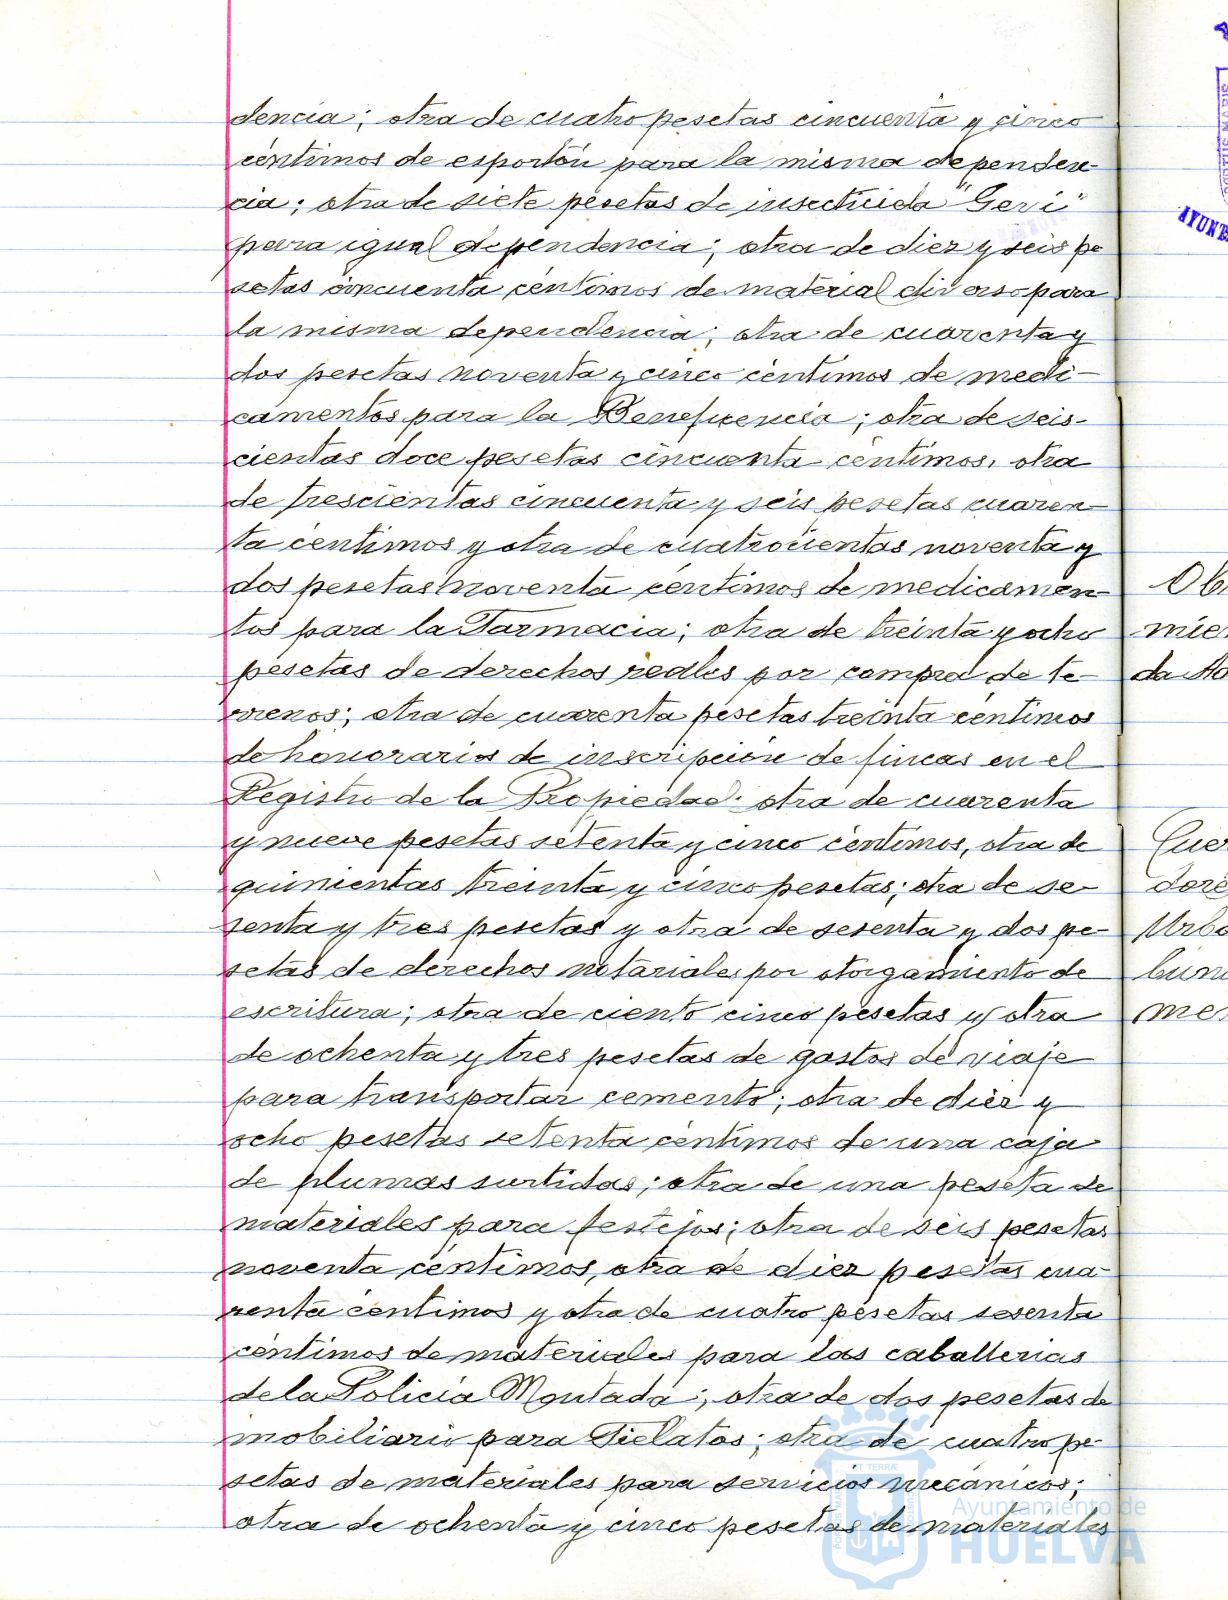 dencia; otra de cuatro pesetas cincuenta y cinco
céntimos de esportón para la misma dependen-
cia; otra de siete pesetas de insecticida "Geri"
para igual dependencia; otra de diez y seis pe-
setas cincuenta céntimos de material diverso para
la misma dependencia; otra de cuarenta y
dos pesetas noventa y cinco céntimos de medi-
camentos para la Beneficencia; otra de seis-
cientas doce pesetas cincuenta céntimos, otra
de trescientas cincuenta y seis pesetas cuaren-
ta céntimos y otra de cuatrocientas noventa y
dos pesetas noventa céntimos de medicamen-
tos para la Farmacia; otra de treinta y ocho
pesetas de derechos reales por compra de te-
rrenos; otra de cuarenta pesetas treinta céntimos
de honorarios de inscripción de fincas en el
Registro de la Propiedad; otra de cuarenta
y nueve pesetas setenta y cinco céntimos, otra de
quinientas treinta y cinco pesetas; otra de se-
senta y tres pesetas y otra de sesenta y dos pe-
setas de derechos notariales por otorgamiento de
escritura; otra de ciento cinco pesetas y otra
de ochenta y tres pesetas de gastos de viaje
para transportar cemento; otra de diez y
ocho pesetas setenta céntimos de una caja
de plumas surtidas; otra de una peseta de
materiales para festejos; otra de seis pesetas
noventa céntimos, otra de diez pesetas cua-
renta céntimos y otra de cuatro pesetas sesenta
céntimos de materiales para las caballerias
de la Policía Montada; otra de dos pesetas de
mobiliario para Fielatos; otra de cuatro pe-
setas de materiales para servicios mecánicos;
otra de ochenta y cinco pesetas de materiales
Ayuntamiento de
HUELVA